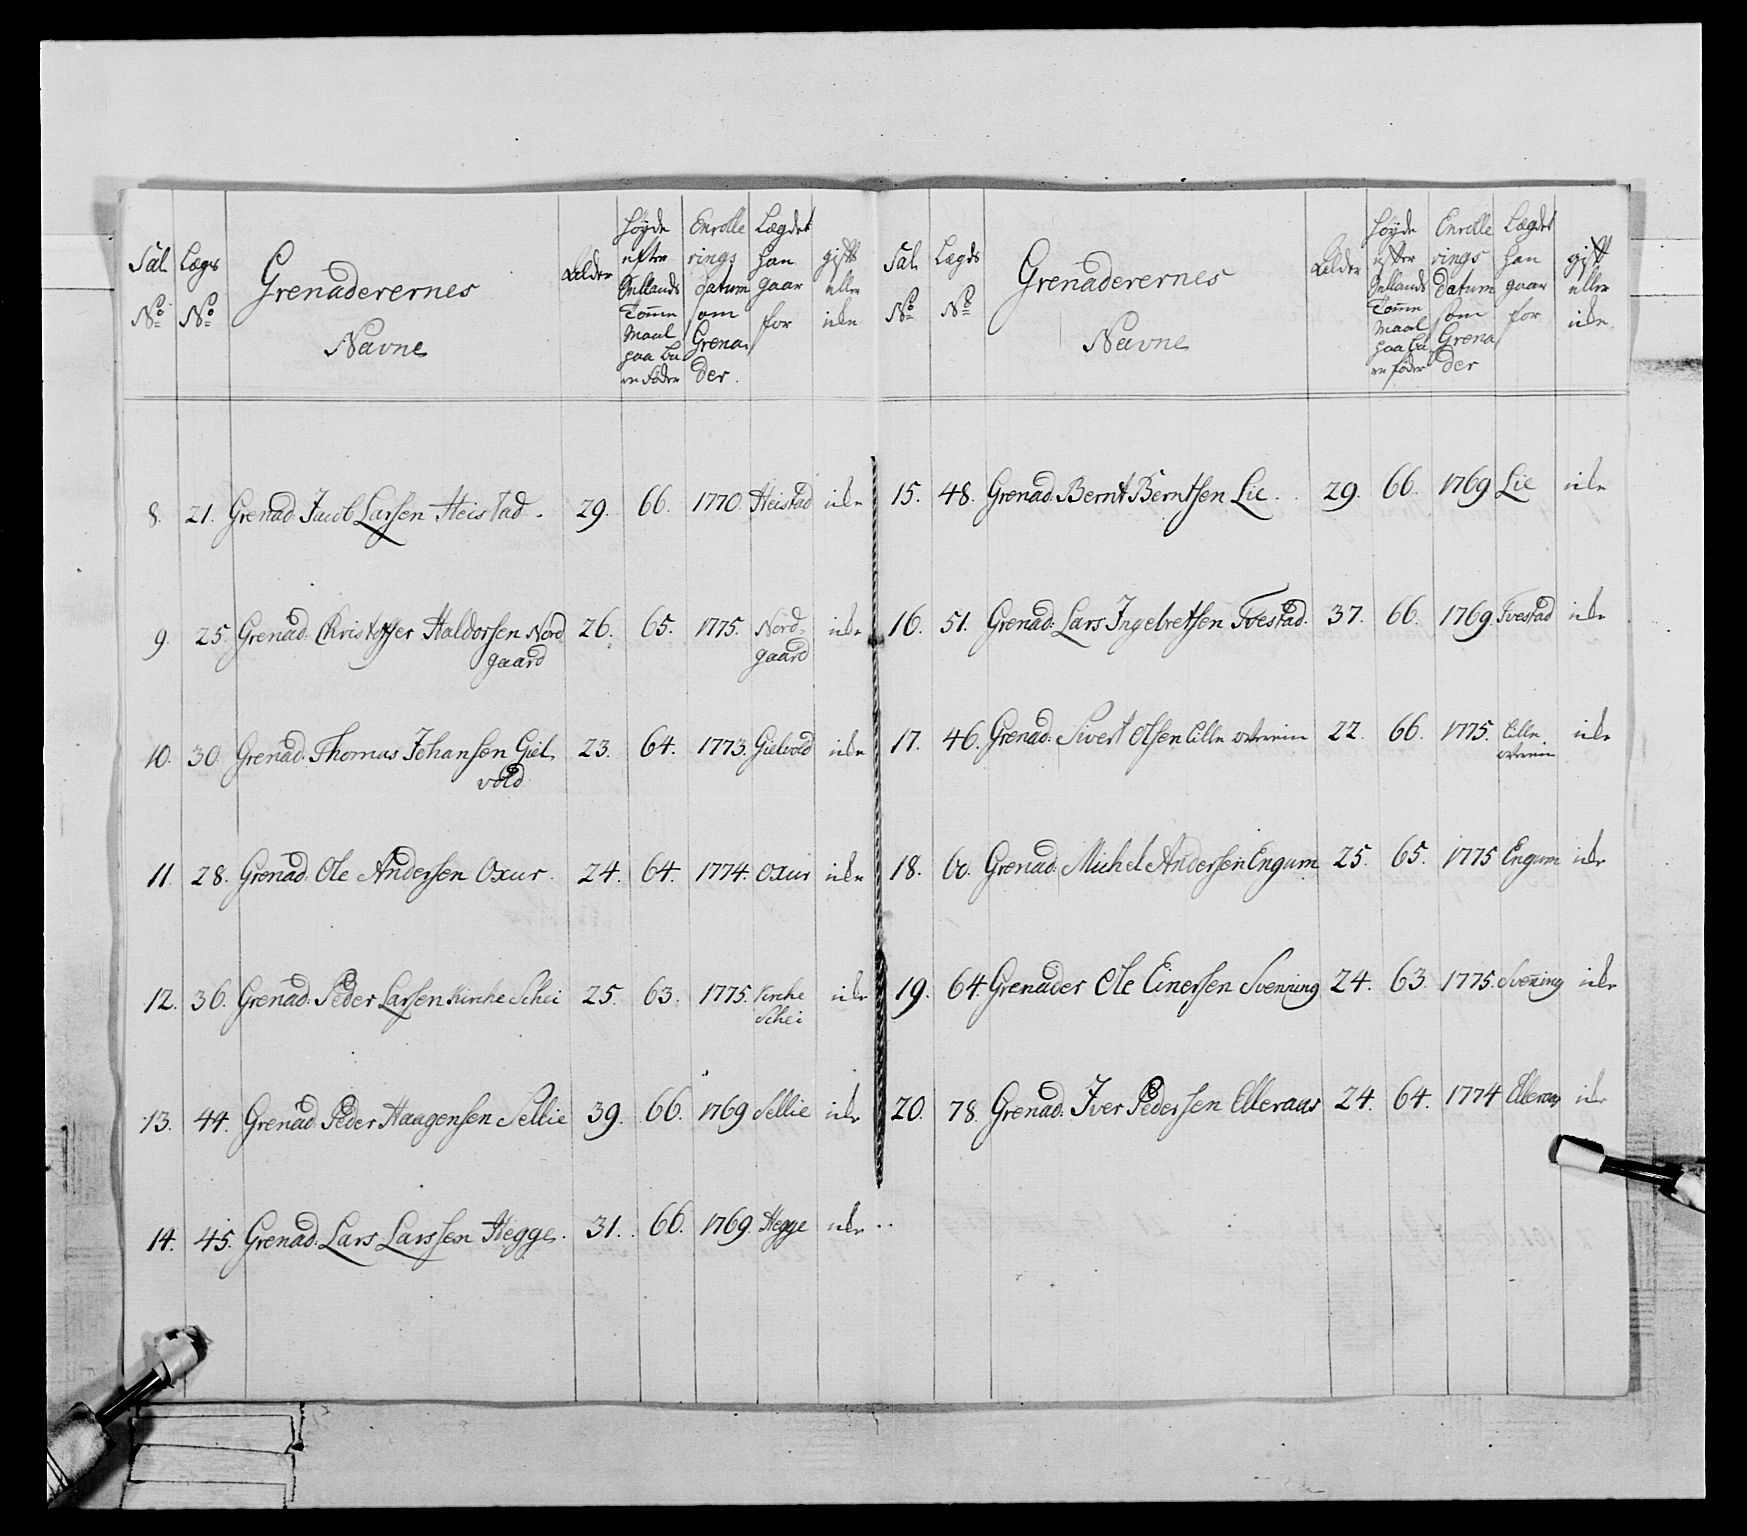 Sal N° | Lægs N° | Grenaderernes Navne | Alder | Høyde efter Sellands Tomme Maal paa ba re Føder | Enrolle rings datum som Grena der. | Lægdet han gaar for | gift eller icke
8. 21. Grenad. Jacob Larsen Heistad. 29. 66. 1770. Heistad icke
9. 25. Grenad. Christoffer Haldorsen Nord 26. 65. 1775. Nord- icke
gaard gaard
10. 30. Grenad. Thomas Johansen Giel 23. 64. 1773. Gielvold icke
vold
11. 28. Grenad. Ole Andersen Oxur. 24. 64. 1774. Oxur icke
12. 36. Grenad. Peder Larsen Kirke Schei 25. 63. 1775. Kirke icke
Schei
13. 44. Grenad. Peder Haagensen Sellie 39. 66. 1769 Sellie icke
14. 45. Grenad. Lars Larssen Hegge. 31. 66. 1769. Hegge icke
Sal N° | Lægds N° | Grenaderernes Navne | Alder | Høyde efter Sellands Tomme Maal paa ba re føder | Enrolle rings datum som Grena der | Lægdet han gaar for | gift eller icke.
15. 48. Grenad. Bernt Berntsen Lie. 29. 66. 1769 Lie icke
16. 51. Grenad. Lars Ingebretsen Tvestad. 37. 66. 1769 Tvestad icke
17. 46. Grenad. Sivert Olsen Lille 22. 66. 1775. Lille icke
18. 60. Grenad. Michel Andersen Engum 25. 65. 1775 Engum icke
19. 64. Grenader Ole Einersen Svenning 24. 63. 1775. Svening icke
20. 78. Grenad. Iver Pedersen Elleraas 24. 64. 1774 Elleraas icke